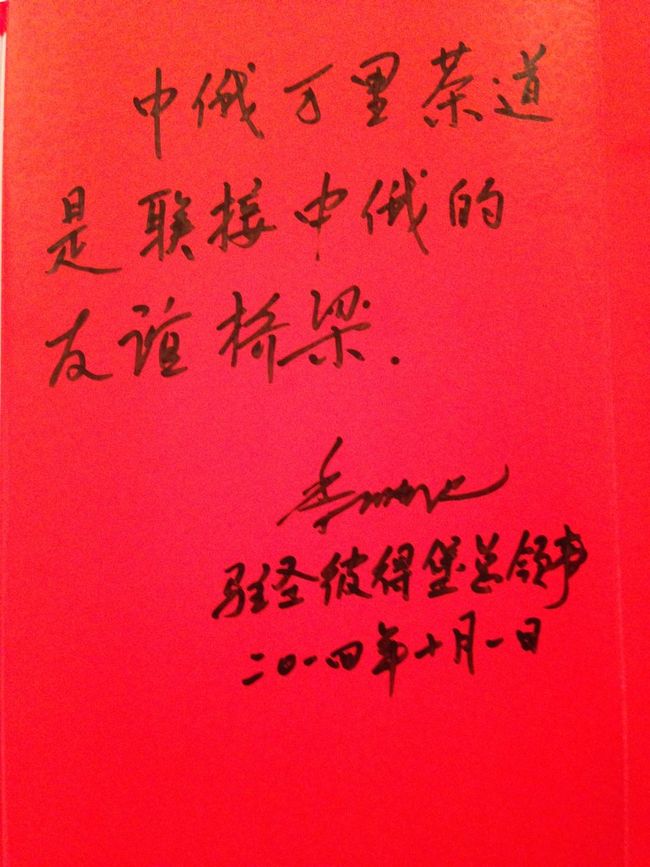 中俄万里茶道
是联接中俄的
友谊桥梁.
季
驻圣彼得堡总领事
二〇一四年十月一日